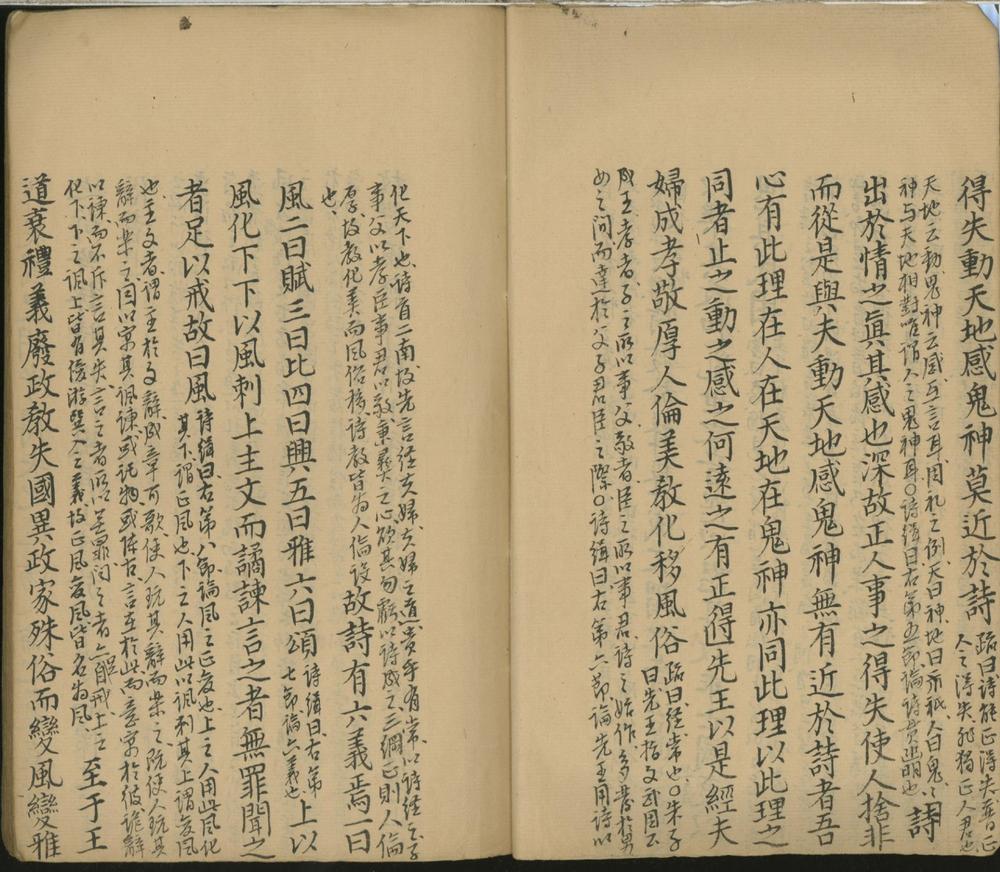 得失動天地感鬼神莫近於詩疏曰詩能正得失普正人之得失非獨正人君也
天地云動鬼神云感互言耳周礼之例天曰神地曰示祇人曰鬼鬼
神与天地相對唯謂人之鬼神耳○詩緝曰右第五節論詩貫幽明也詩
出於情之眞其感也深故正人事之得失使人捨非
而從是與夫動天地感鬼神無有近於詩者吾
心有此理在人在天地在鬼神亦同此理以此理之
同者止之動之感之何遠之有正得先王以是經夫
婦成孝敬厚人倫美敎化移風俗疏曰経常也○朱子曰先王指文武周公
成王孝者子之所以事父敬者臣之所以事君詩之始作多發於男
女之间而達於父子君臣之際○詩緝曰右第六節論先王用詩以
化天下也詩首二南故先言经夫婦夫婦之道貴乎有常以詩経之子
事父以孝臣事君以敬秉彝之心欲其勿虧以詩成之三綱正則人倫
厚故敎化美而風俗移詩敎皆為人倫设也故詩有六義焉一曰
風二曰賦三曰比四曰興五曰雅六曰頌詩緝曰右第七節論六義也上以
風化下下以風刺上主文而譎諫言之者無罪聞之
者足以戒故曰風詩緝曰右第八節論風之正变也上之人用此風化其下謂正風也下之人用此以諷刺其上謂变風
也主文者謂主於文辭成章可歌使人玩其辭而樂之既使人玩其
辭而樂之因以寓其諷諫或託物或陳古言在於此而意寓於彼詭辭
以諫而不斥言其失言之者既以無罪闻之者亦能戒上之
化下下之諷上皆有優游巽入之義故正風变風皆名為風至于王
道衰禮義廢政敎失國異政家殊俗而變風變雅